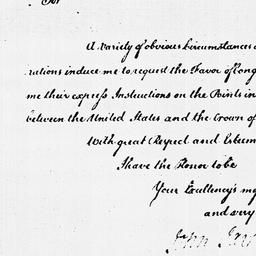 Sir
A Variety of obvious Circumstances
rations induce me to request the Favor of
me their express Instructions on the Points in
between the United States and the Crown of
With great Respect and Esteem
I have the Honor to be
Your Excellency's
and very
John